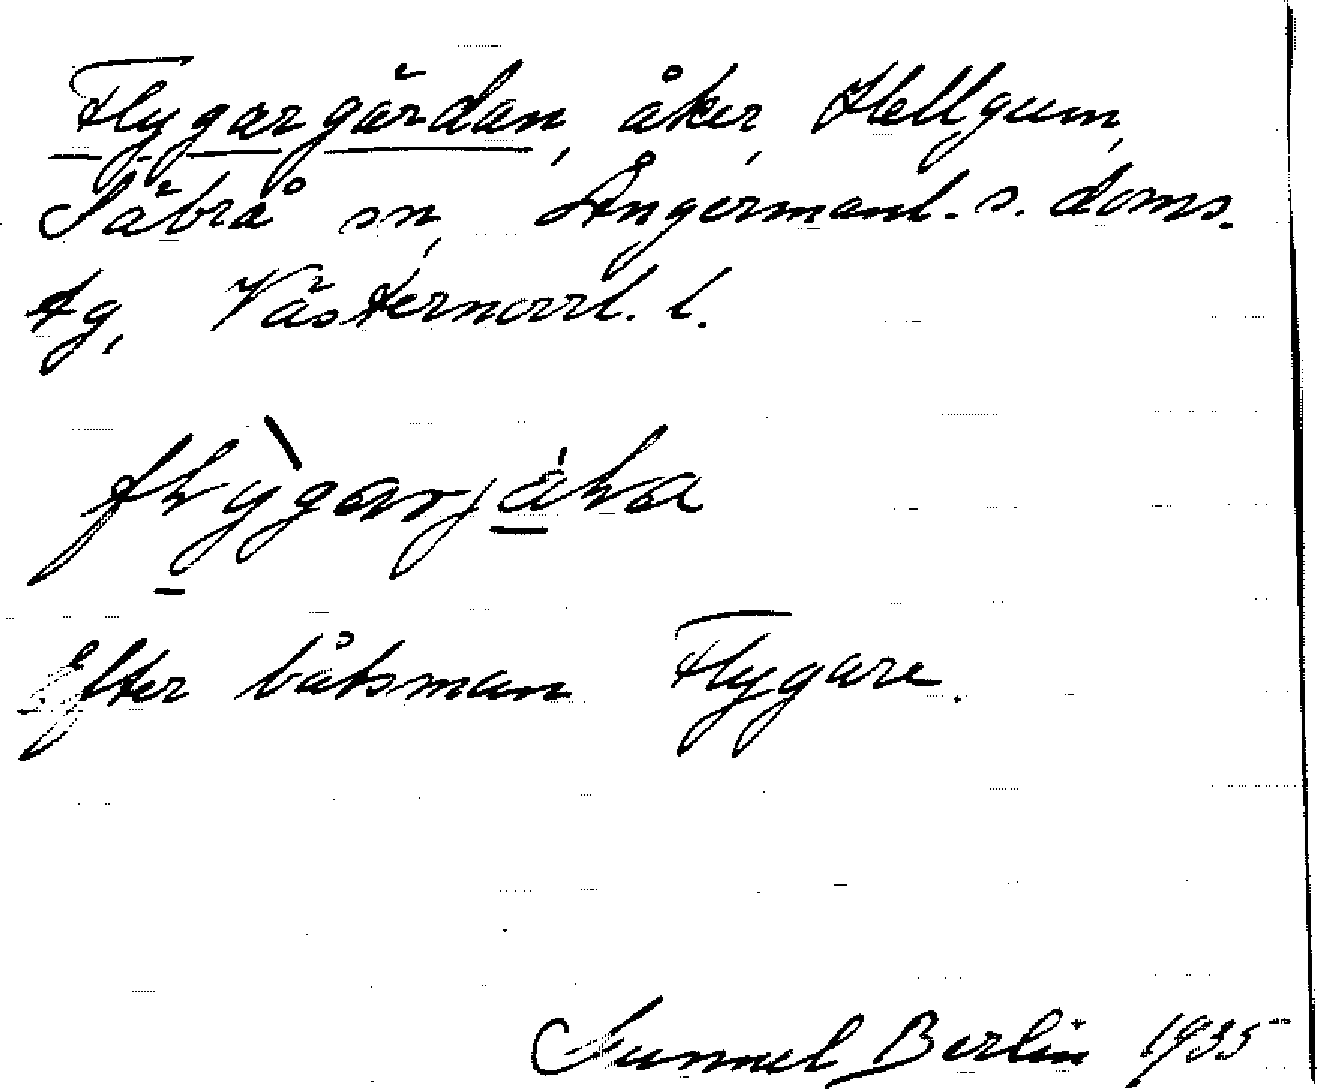 Flygargärdan, åker, Hellgum,
Säbrå sn, Ångermanl. s. doms.
tg, Västernorrl. l.
Efter båtsman Flygare.
Gunnel Berlin 1935